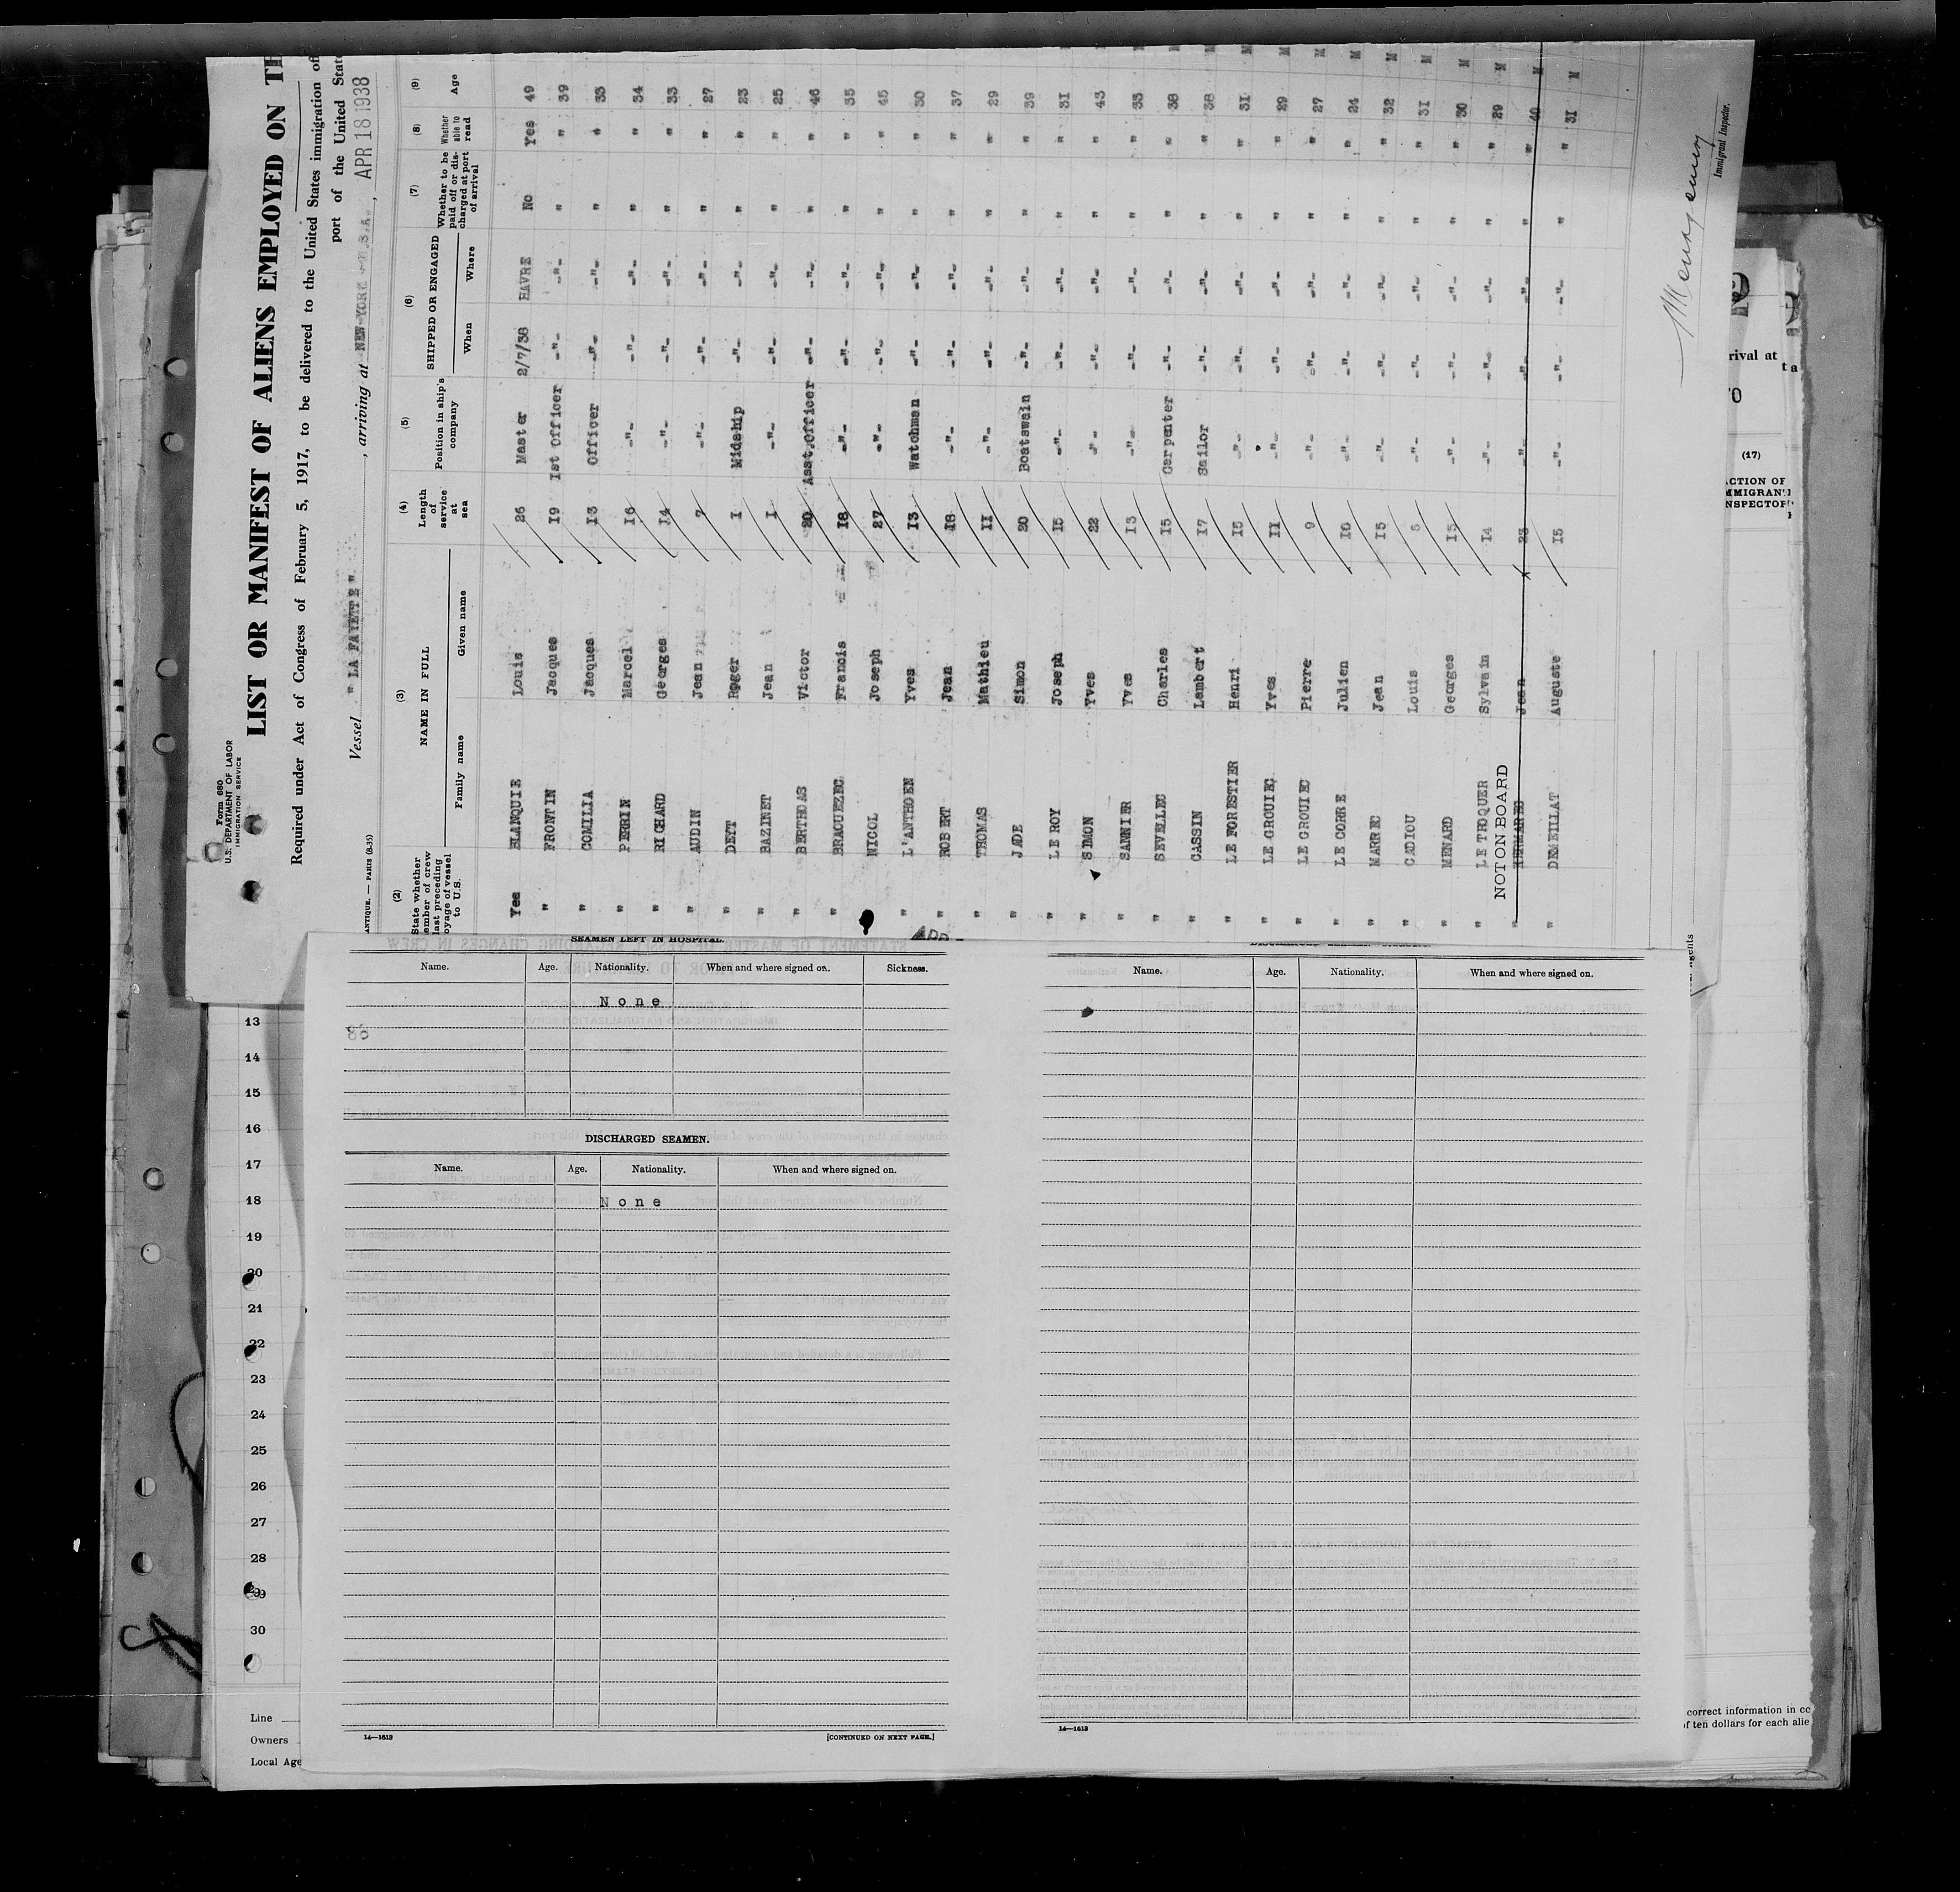 Form 680
U.S. DEPARTMENT OF LABOR
IMMIGRATION SERVICE
LIST OR MANIFEST OF ALIENS EMPLOYED ON TH
Required under Act of Congress of February 5, 1917, to be delivered to the United States immigration of
port of the United State
Vessel "LA FAYETTE", arriving at NEW-YORK U.S.A., APR 18 1938
ANTIQUE. — PARIS (2-35)
(2) (3) (4) (5) (6) (7) (8) (9)
State whether member of crew last preceding voyage of vessel to U.S. NAME IN FULL Family name Given name Length of service at sea Position in ship's company SHIPPED OR ENGAGED When Where Whether to be paid off or discharged at port of arrival Whether able to read Age
Yes BLANQUIE Louis 26 Master 2/7/38 HAVRE No Yes 49
" FRONTIN Jacques 19 1st Officer -"- -"- " " 39
" COMILIA Jacques 13 Officer -"- -"- " " 33
" PERRIN Marcel 16 -"- -"- -"- " " 34
" RICHARD Georges 14 -"- -"- -"- " " 33
" AUDIN Jean 7 -"- -"- -"- " " 27
" DEYT Roger 1 Midship -"- -"- " " 23
" BAZINET Jean 1 -"- -"- -"- " " 25
" BERTHOAS Victor 20 Asst.Officer -"- -"- " " 46
" BRAOUEZEC Francis 18 -"- -"- -"- " " 35
" NICOL Joseph 27 -"- -"- -"- " " 45
" L'ANTHOEN Yves 13 Watchman -"- -"- " " 30
" ROBERT Jean 18 -"- -"- -"- " " 37
" THOMAS Mathieu 11 -"- -"- -"- " " 29
" JADE Simon 20 Boatswain -"- -"- " " 39
" LE ROY Joseph 15 -"- -"- -"- " " 31
" SIMON Yves 22 -"- -"- -"- " " 43
" SANNIER Yves 13 -"- -"- -"- " " 33
" SEVELLEC Charles 15 Carpenter -"- -"- " " 38
" CASSIN Lambert 17 Sailor -"- -"- " " 38
" LE FORESTIER Henri 15 -"- -"- -"- " " 31 M
" LE GROUIEC Yves 11 -"- -"- -"- " " 29 M
" LE GROUIEC Pierre 9 -"- -"- -"- " " 27 M
" LE CORRE Julien 10 -"- -"- -"- " " 24 M
" MARREC Jean 15 -"- -"- -"- " " 32 M
" CADIOU Louis -"- -"- -"- " " 31 M
" MENARD Georges 15 -"- -"- -"- " " 30 M
" LE TROQUER Sylvain 14 -"- -"- -"- " " 29 M
NOT ON BOARD
" KERMAREC Jean 23 -"- -"- -"- " " 40 M
" DEMEILLAT Auguste 15 -"- -"- -"- " " 31 M
Immigrant Inspector.
rival at
(17)
ACTION OF
IMMIGRANT
INSPECTOR
SEAMEN LEFT IN HOSPITAL.
Name. Age. Nationality. When and where signed on. Sickness.
None
DISCHARGED SEAMEN.
Name. Age. Nationality. When and where signed on.
None
14—1613 [CONTINUED ON NEXT PAGE.]
Name. Age. Nationality. When and where signed on.
14—1613
13
14
15
16
17
18
19
20
21
22
23
24
25
26
27
28
29
30
Line
Owners
Local Age
correct information in cc
of ten dollars for each alie